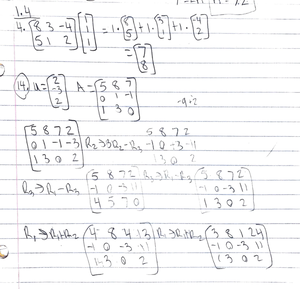 1.4
4. [8 3 -4; 5 1 2] [1; 1; 1] = 1·[8; 5] + 1·[3; 1] + 1·[-4; 2]
= [7; 8]
14. u = [2; -3; 2] A = [5 8 7; 0 1 -1; 1 3 0]
[5 8 7 2; 0 1 -1 -3; 1 3 0 2] 5 8 7 2
1 3 0 2
R3 → R1 - R3 [5 8 7 2; -1 0 -3 -11; 4 5 7 0] [5 8 7 2; -1 0 -3 11; 1 3 0 2]
R1 → R1 + R2 [4 8 4 13; -1 0 -3 11; 1 3 0 2] R1 → R1 + R2 [3 8 1 24; -1 0 -3 11; 1 3 0 2]